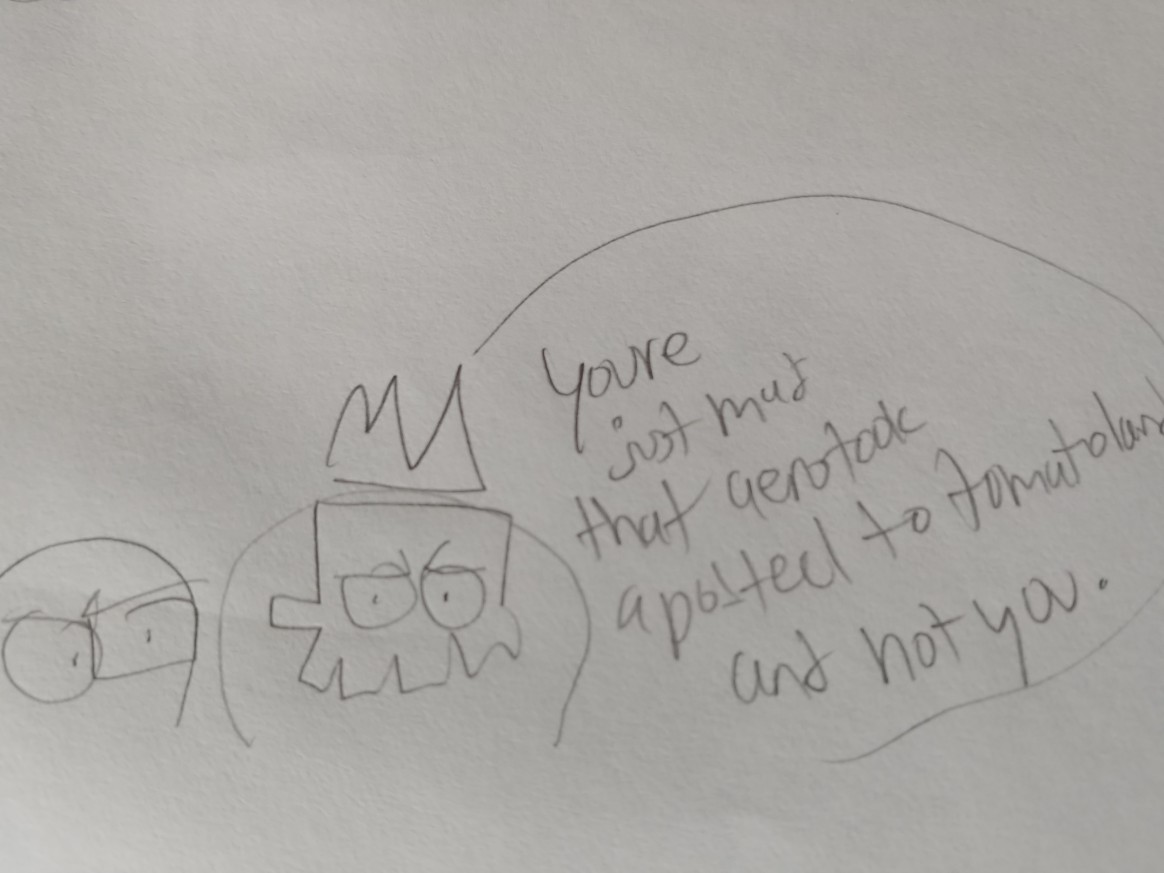 Youre
just mad
that aerotook
aposteel to tomatoland
and not you.